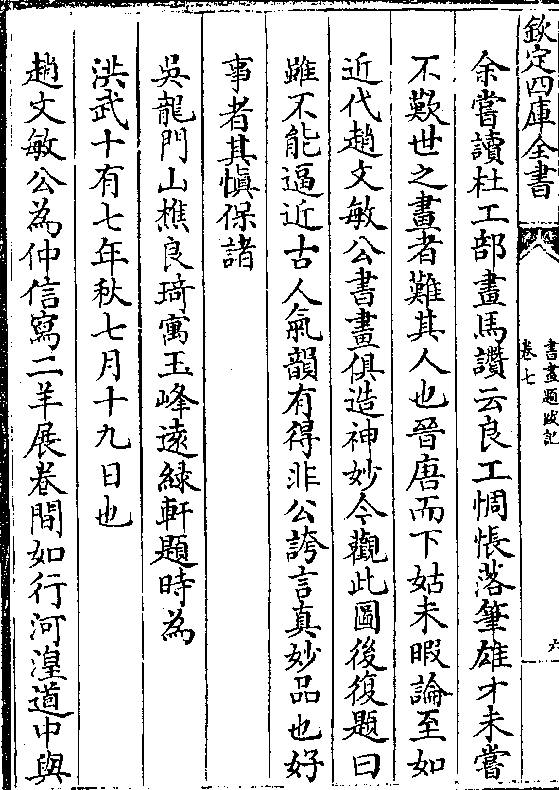 欽定四庫全書
書畫題跋記
卷七
六
余嘗讀杜工部畫馬讚云良工惆悵落筆雄才未嘗
不歎世之畫者難其人也晉唐而下姑未暇論至如
近代趙文敏公書畫俱造神妙今觀此圖後復題曰
雖不能逼近古人氣韻有得非公誇言真妙品也好
事者其慎保諸
吳龍門山樵良琦寓玉峰遠緑軒題時為
洪武十有七年秋七月十九日也
趙文敏公為仲信寫二羊展卷間如行河湟道中與